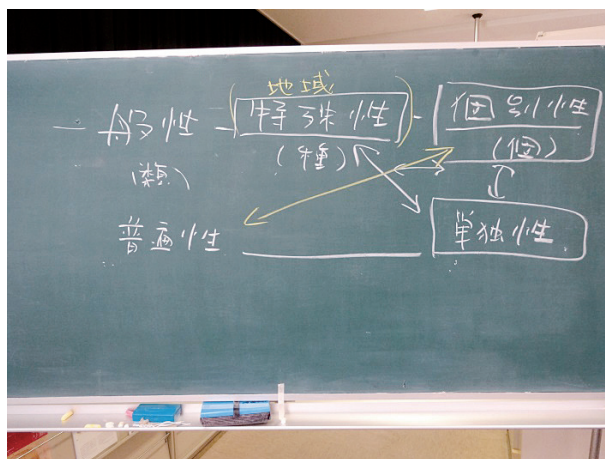 (地域)
一般性 - 特殊性 - 個別性
(類) (種) (個)
普遍性 単独性